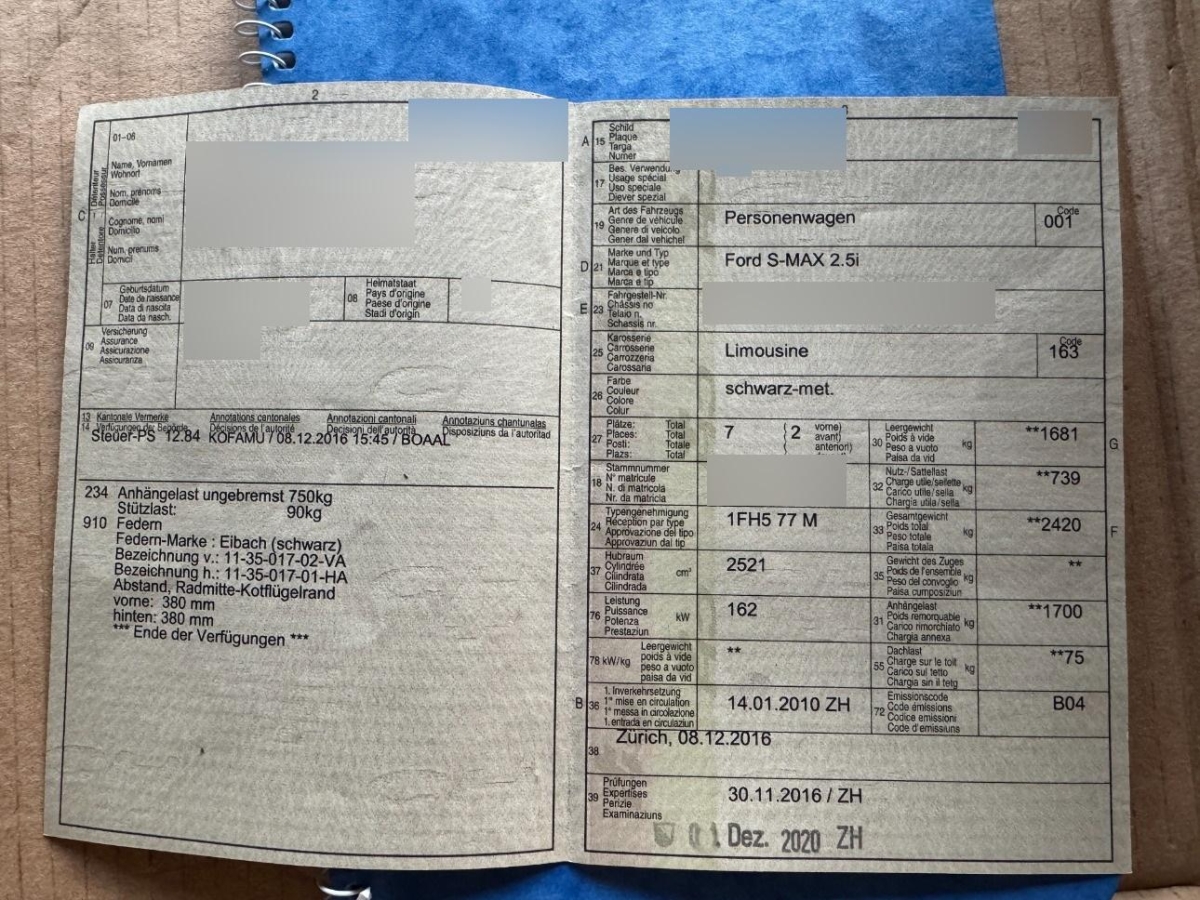 2
01-06
Name, Vornamen
Wohnort
Nom, prénoms
Domicile
Cognome, nomi
Domicilio
Num, prenums
Domicil
C
Halter
Détenteur
Detentore
Possessur
07
Geburtsdatum
Date de naissance
Data di nascita
Data da nasch.
08
Heimatstaat
Pays d'origine
Paese d'origine
Stadi d'origin
09
Versicherung
Assurance
Assicurazione
Assicuranza
13 Kantonale Vermerke Annotations cantonales Annotazioni cantonali Annotaziuns chantunalas
14 Verfügungen der Behörde Décisions de l'autorité Decisioni dell'autorità Disposiziuns da l'autoritad
Steuer-PS 12.84 KOFAMU / 08.12.2016 15:45 / BOAAL
234 Anhängelast ungebremst 750kg
Stützlast: 90kg
910 Federn
Federn-Marke : Eibach (schwarz)
Bezeichnung v.: 11-35-017-02-VA
Bezeichnung h.: 11-35-017-01-HA
Abstand, Radmitte-Kotflügelrand
vorne: 380 mm
hinten: 380 mm
*** Ende der Verfügungen ***
A 15
Schild
Plaque
Targa
Numer
17
Bes. Verwendung
Usage spécial
Uso speciale
Diever spezial
19
Art des Fahrzeugs
Genre de véhicule
Genere di veicolo
Gener dal vehichel
Personenwagen
Code
001
D 21
Marke und Typ
Marque et type
Marca e tipo
Marca e tip
Ford S-MAX 2.5i
E 23
Fahrgestell-Nr.
Châssis no
Telaio n.
Schassis nr.
25
Karosserie
Carrosserie
Carrozzeria
Carossaria
Limousine
Code
163
26
Farbe
Couleur
Colore
Colur
schwarz-met.
27
Plätze: Total
Places: Total
Posti: Totale
Plazs: Total
7 2
vorne)
avant)
anteriori)
30
Leergewicht
Poids à vide
Peso a vuoto
Paisa da vid
kg
**1681
G
18
Stammnummer
N° matricule
N. di matricola
Nr. da matricla
32
Nutz-/Sattellast
Charge utile/sellette
Carico utile/sella
Chargia utila/sella
kg
**739
24
Typengenehmigung
Réception par type
Approvazione del tipo
Approvaziun dal tip
1FH5 77 M
33
Gesamtgewicht
Poids total
Peso totale
Paisa totala
kg
**2420
F
37
Hubraum
Cylindrée
Cilindrata
Cilindrada
cm³
2521
35
Gewicht des Zuges
Poids de l'ensemble
Peso del convoglio
Paisa cumposiziun
kg
**
76
Leistung
Puissance
Potenza
Prestaziun
kW
162
31
Anhängelast
Poids remorquable
Carico rimorchiato
Chargia annexa
kg
**1700
78 kW/kg
Leergewicht
poids à vide
peso a vuoto
paisa da vid
**
55
Dachlast
Charge sur le toit
Carico sul tetto
Chargia sin il tetg
kg
**75
B 36
1. Inverkehrsetzung
1re mise en circulation
1a messa in circolazione
1. entrada en circulaziun
14.01.2010 ZH
72
Emissionscode
Code émissions
Codice emissioni
Code d'emissiuns
B04
38
Zürich, 08.12.2016
39
Prüfungen
Expertises
Perizie
Examinaziuns
30.11.2016 / ZH
01 Dez. 2020 ZH